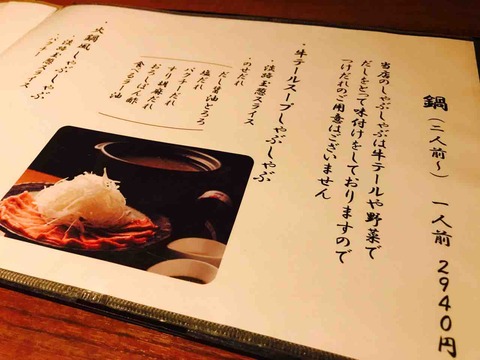 鍋（二人前〜）一人前 2940円
当店のしゃぶしゃぶは牛テールや野菜で
だしをとって味付けをしておりますので
つけだれのご用意はございません
・牛テールスープしゃぶしゃぶ
・淡路玉葱スライス
・のせだれ
だし醤油とろろ
塩だれ
パクチーだれ
すり胡麻だれ
おろしぽん酢
食べるラー油
・火鍋風しゃぶしゃぶ
・淡路玉葱スライス